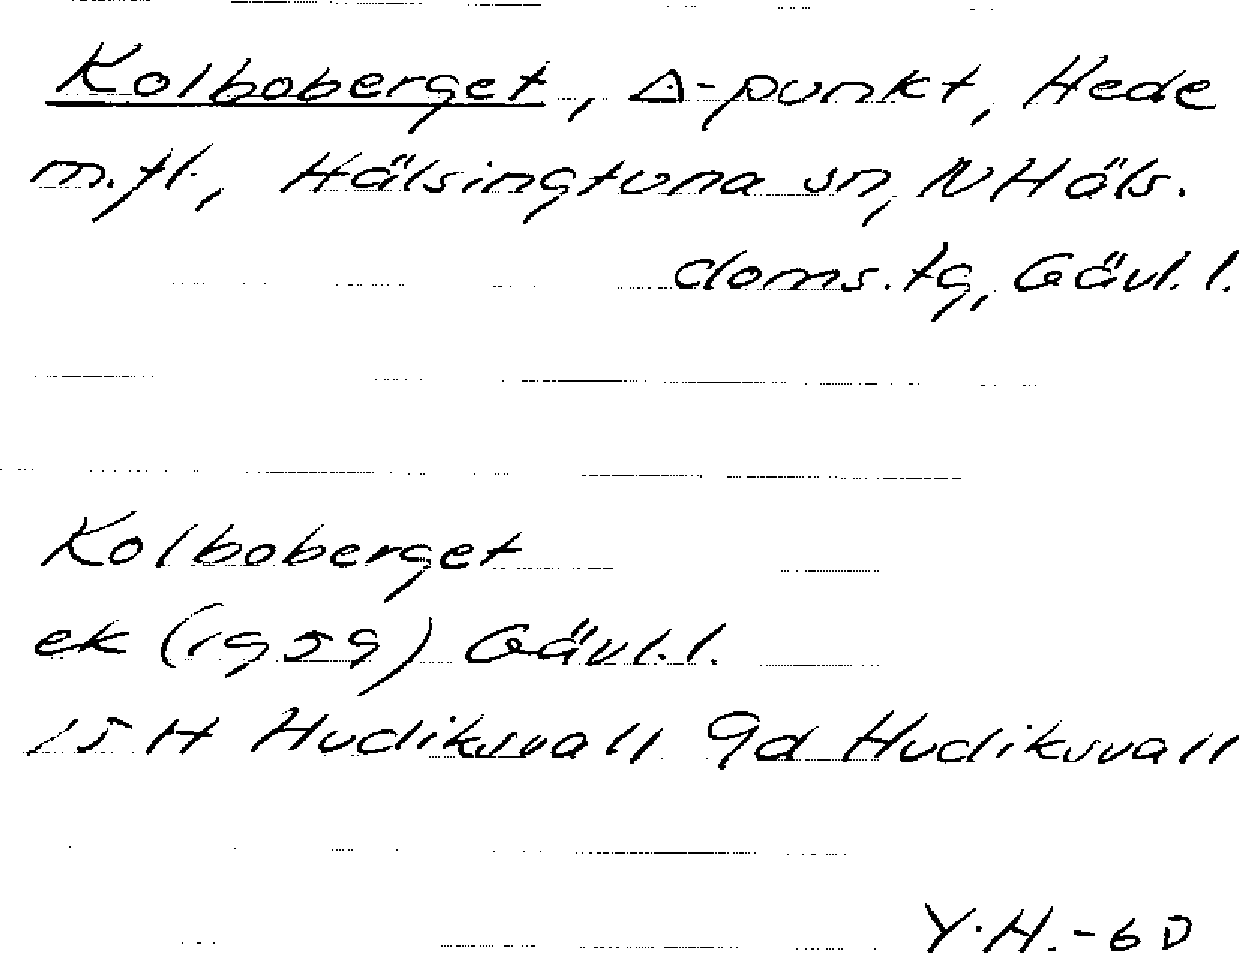 Kolboberget, Δ-punkt, Hede
m.fl., Hälsingtuna sn, N Häls.
doms.tg, Gävl.l.
Kolboberget
ek (1959) Gävl.l.
15 H Hudiksvall 9d Hudiksvall
Y.H.-60